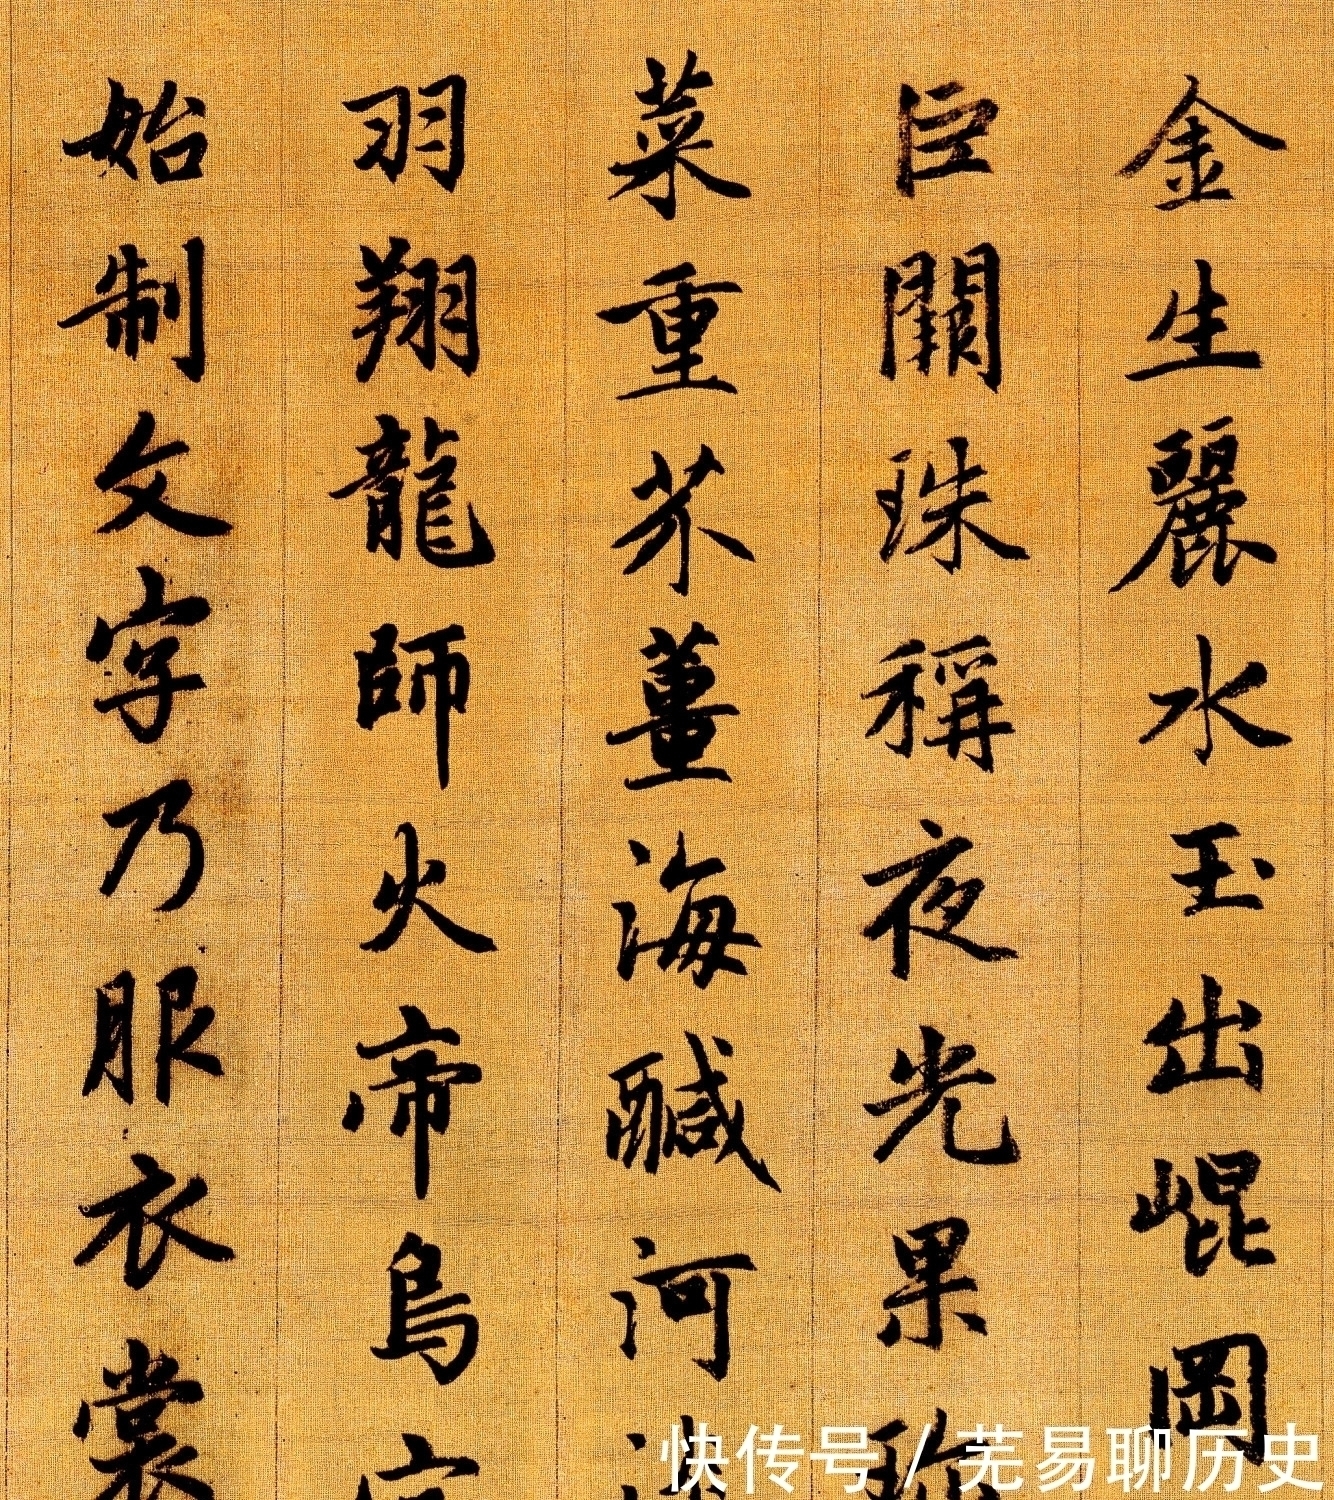 金生麗水玉出崐岡
巨闕珠稱夜光果珎
菜重芥薑海醎河
羽翔龍師火帝鳥官
始制文字乃服衣裳
快传号/芜易聊历史